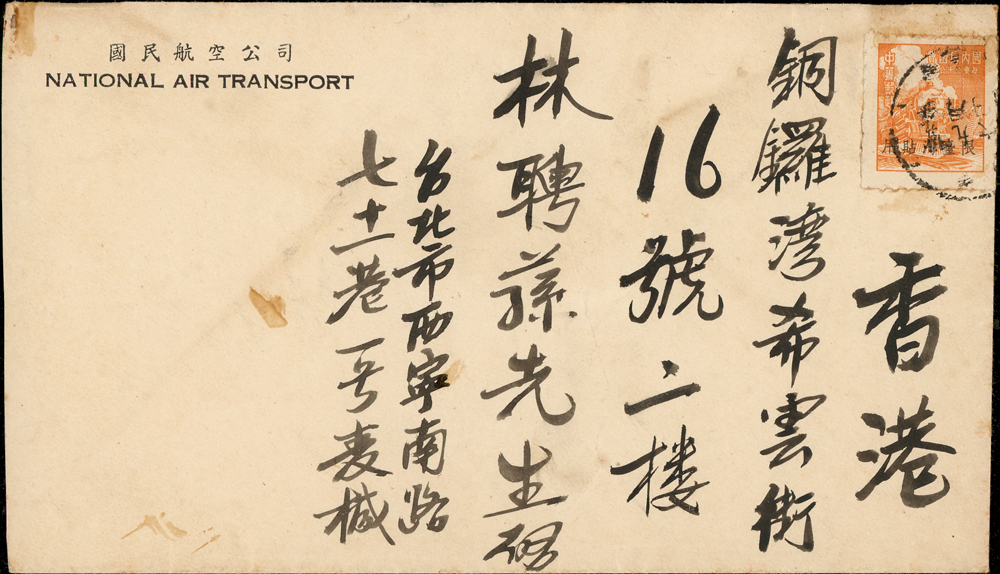 國民航空公司
NATIONAL AIR TRANSPORT
香港
銅鑼灣希雲街
16號二楼
林聘蓀先生啓
台北市西寧南路
七十一巷一号袁緘